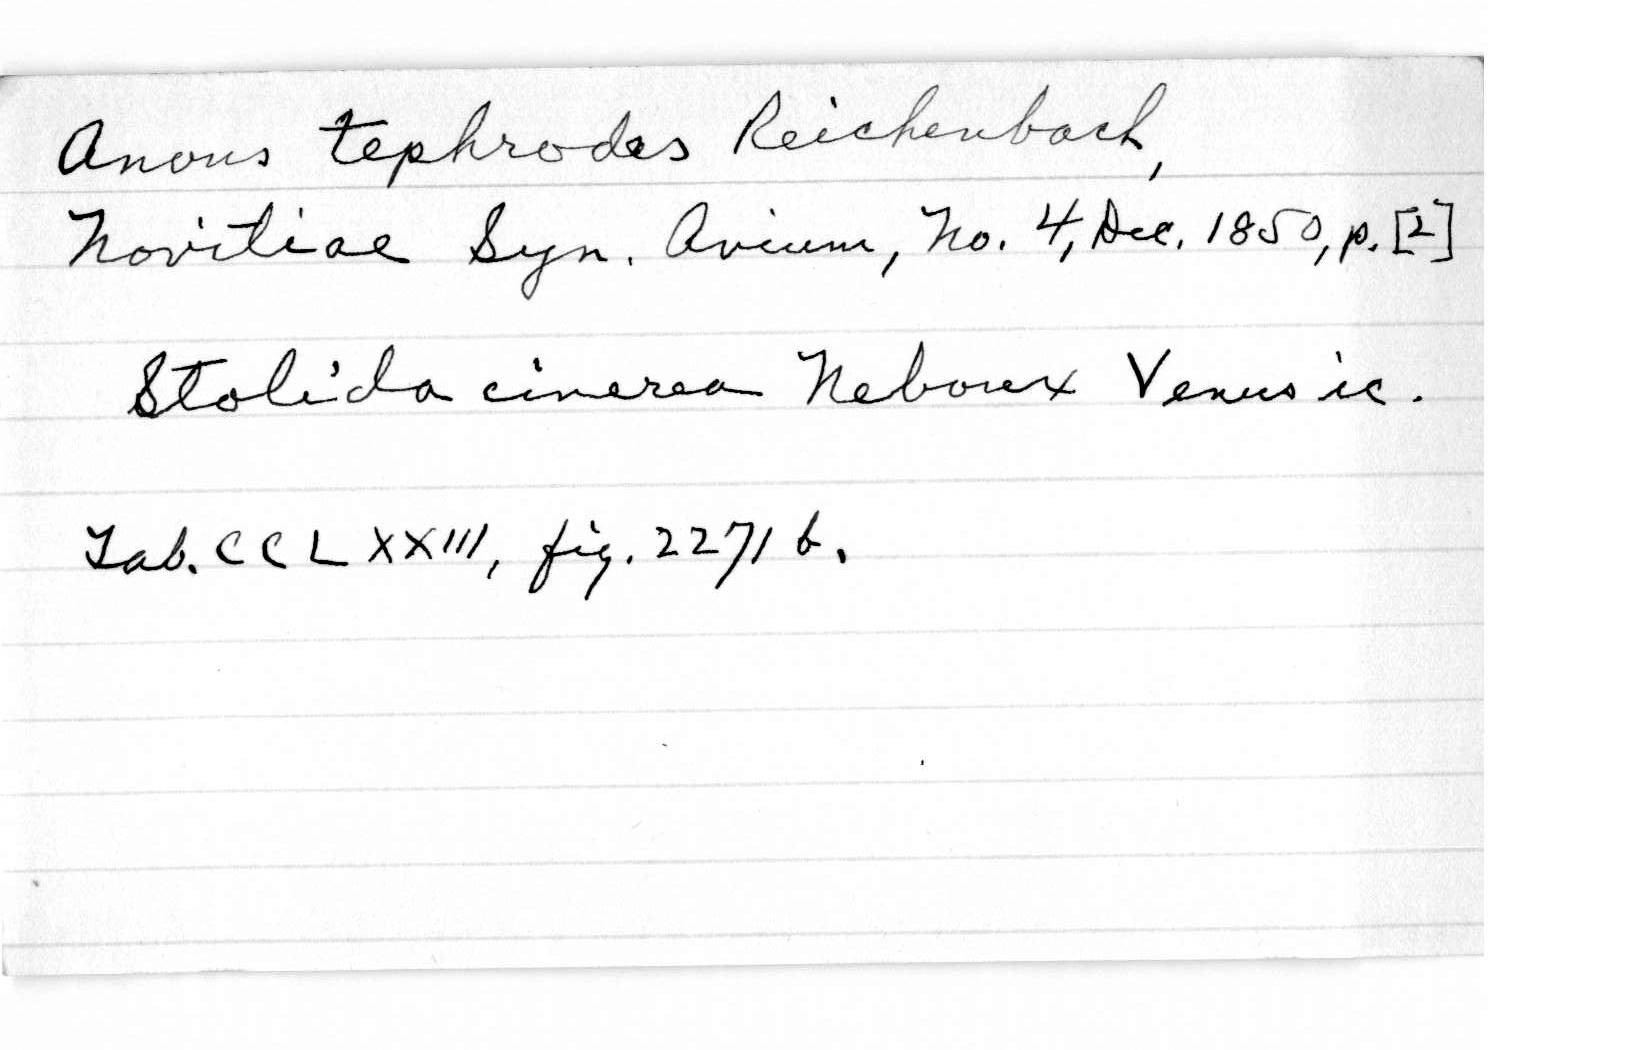 Anous tephrodes Reichenbach,
Novitiae Syn. Avium, No. 4, Dec. 1850, p. [2]
Stolida cinerea Neboux Venus ic.
Tab. CCLXXIII, fig. 2271 b.